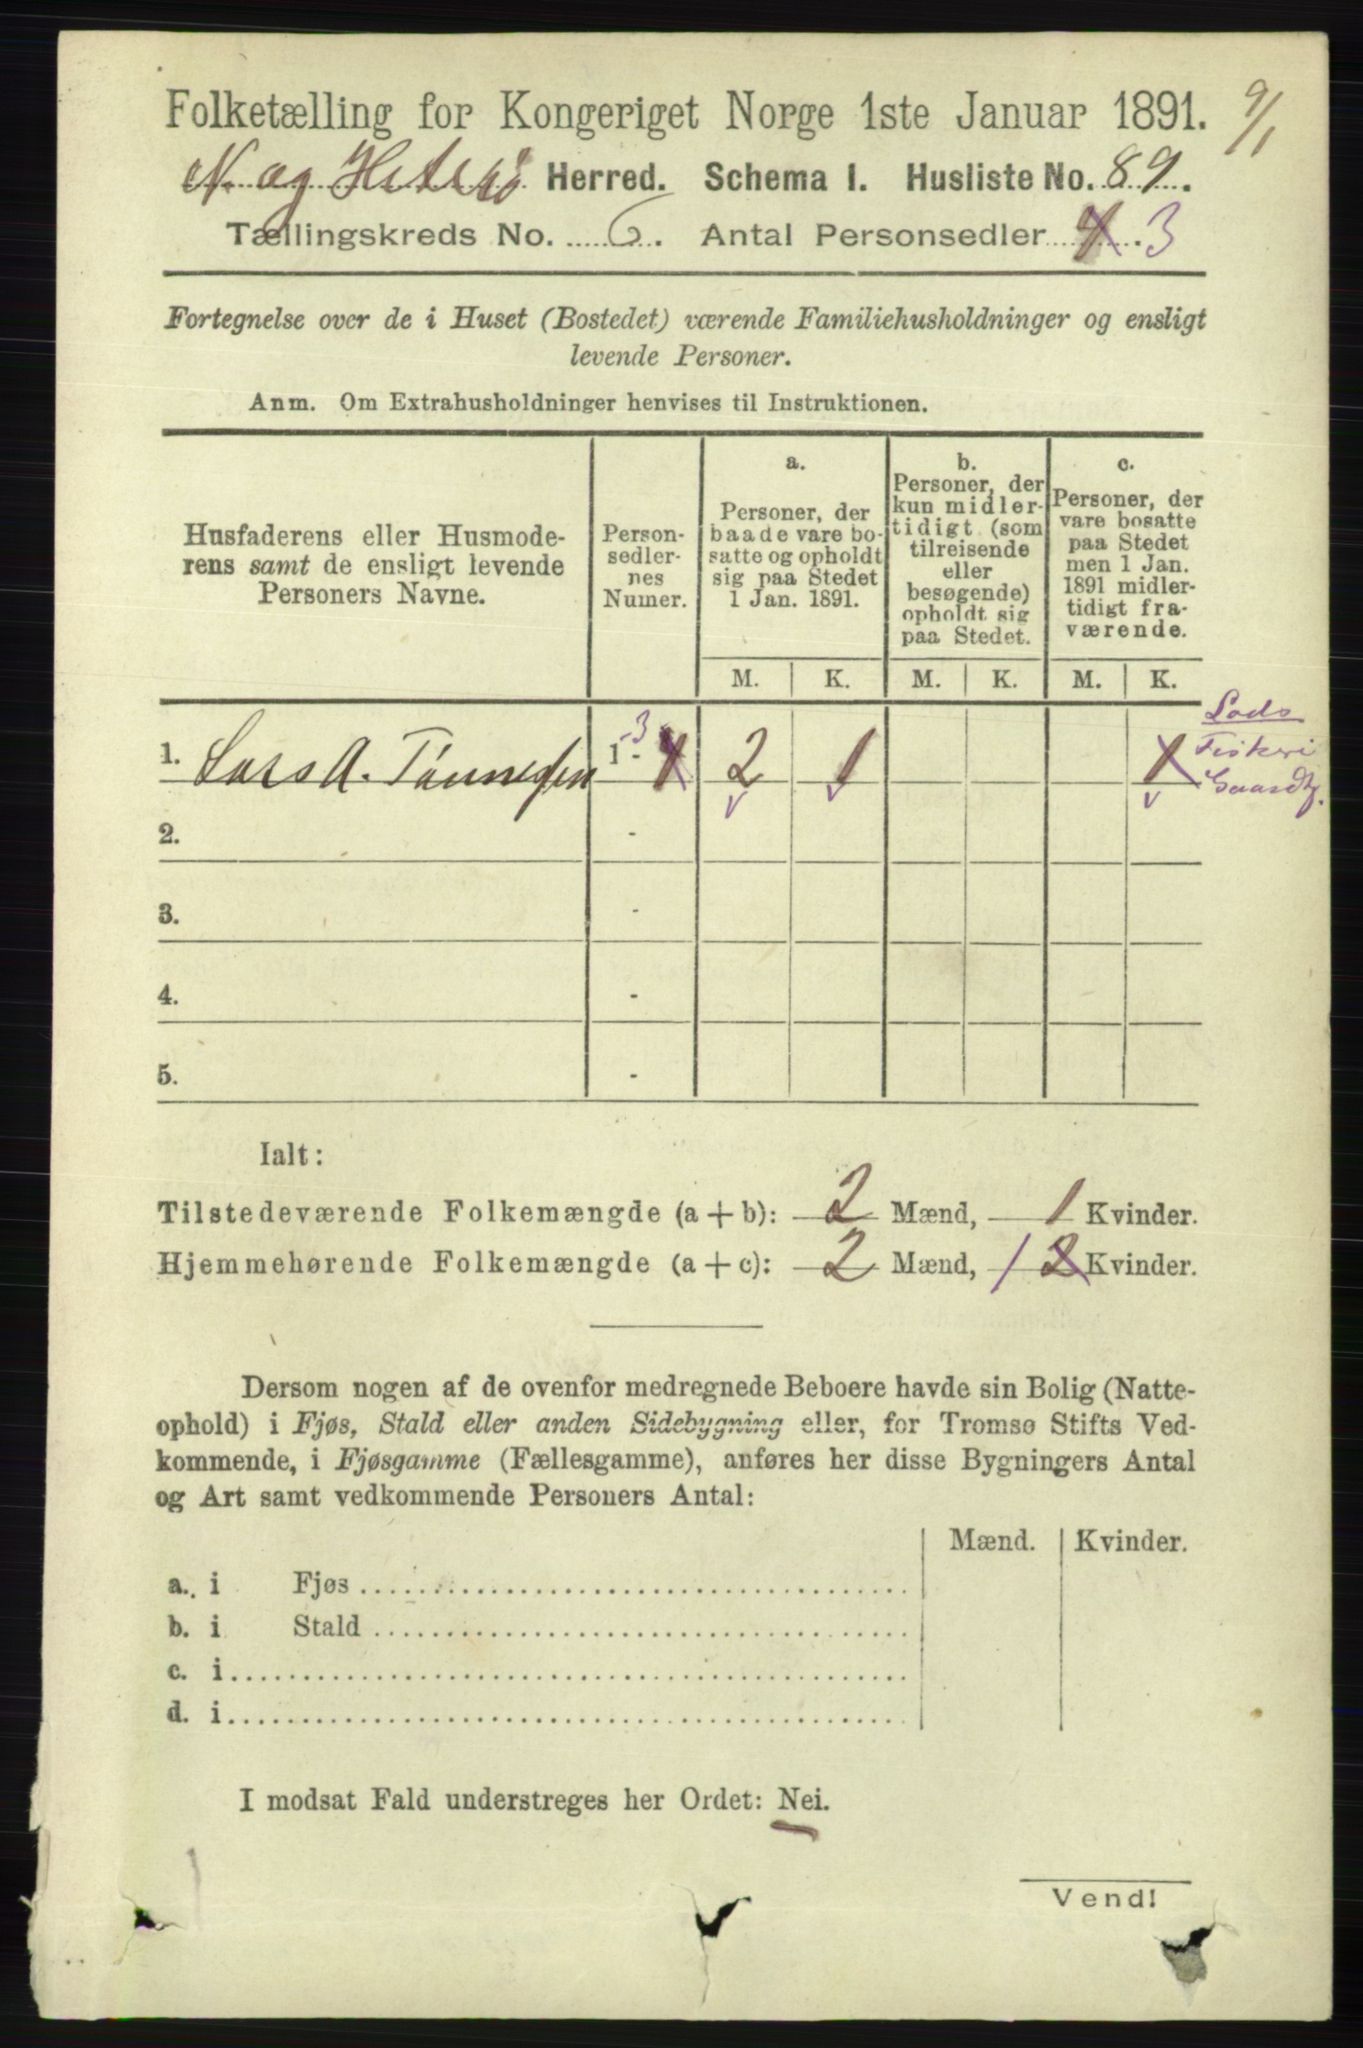 Folketælling for Kongeriget Norge 1ste Januar 1891. 9/1
N. og Hiterø Herred. Schema I. Husliste No. 89.
Tællingskreds No. 6. Antal Personsedler 4. 3
Fortegnelse over de i Huset (Bostedet) værende Familiehusholdninger og ensligt
levende Personer.
Anm. Om Extrahusholdninger henvises til Instruktionen.
Husfaderens eller Husmode-
rens samt de ensligt levende
Personers Navne.
Person-
sedler-
nes
Numer.
a.
Personer, der
baade vare bo-
satte og opholdt
sig paa Stedet
1 Jan. 1891.
b.
Personer, der
kun midler-
tidigt (som
tilreisende
eller
besøgende)
opholdt sig
paa Stedet.
c.
Personer, der
vare bosatte
paa Stedet
men 1 Jan.
1891 midler-
tidigt fra-
værende.
M. K. M. K. M. K.
1. Lars A. Tønnesen 1 - 4 3 2 1 1
Lods
Fiskeri
Gaardb.
2. -
3. -
4. -
5. -
Ialt:
Tilstedeværende Folkemængde (a + b): 2 Mænd, 1 Kvinder.
Hjemmehørende Folkemængde (a + c): 2 Mænd, 1 2 Kvinder.
Dersom nogen af de ovenfor medregnede Beboere havde sin Bolig (Natte-
ophold) i Fjøs, Stald eller anden Sidebygning eller, for Tromsø Stifts Ved-
kommende, i Fjøsgamme (Fællesgamme), anføres her disse Bygningers Antal
og Art samt vedkommende Personers Antal:
Mænd. Kvinder.
a. i Fjøs
b. i Stald
c. i
d. i
I modsat Fald understreges her Ordet: Nei.
Vend!